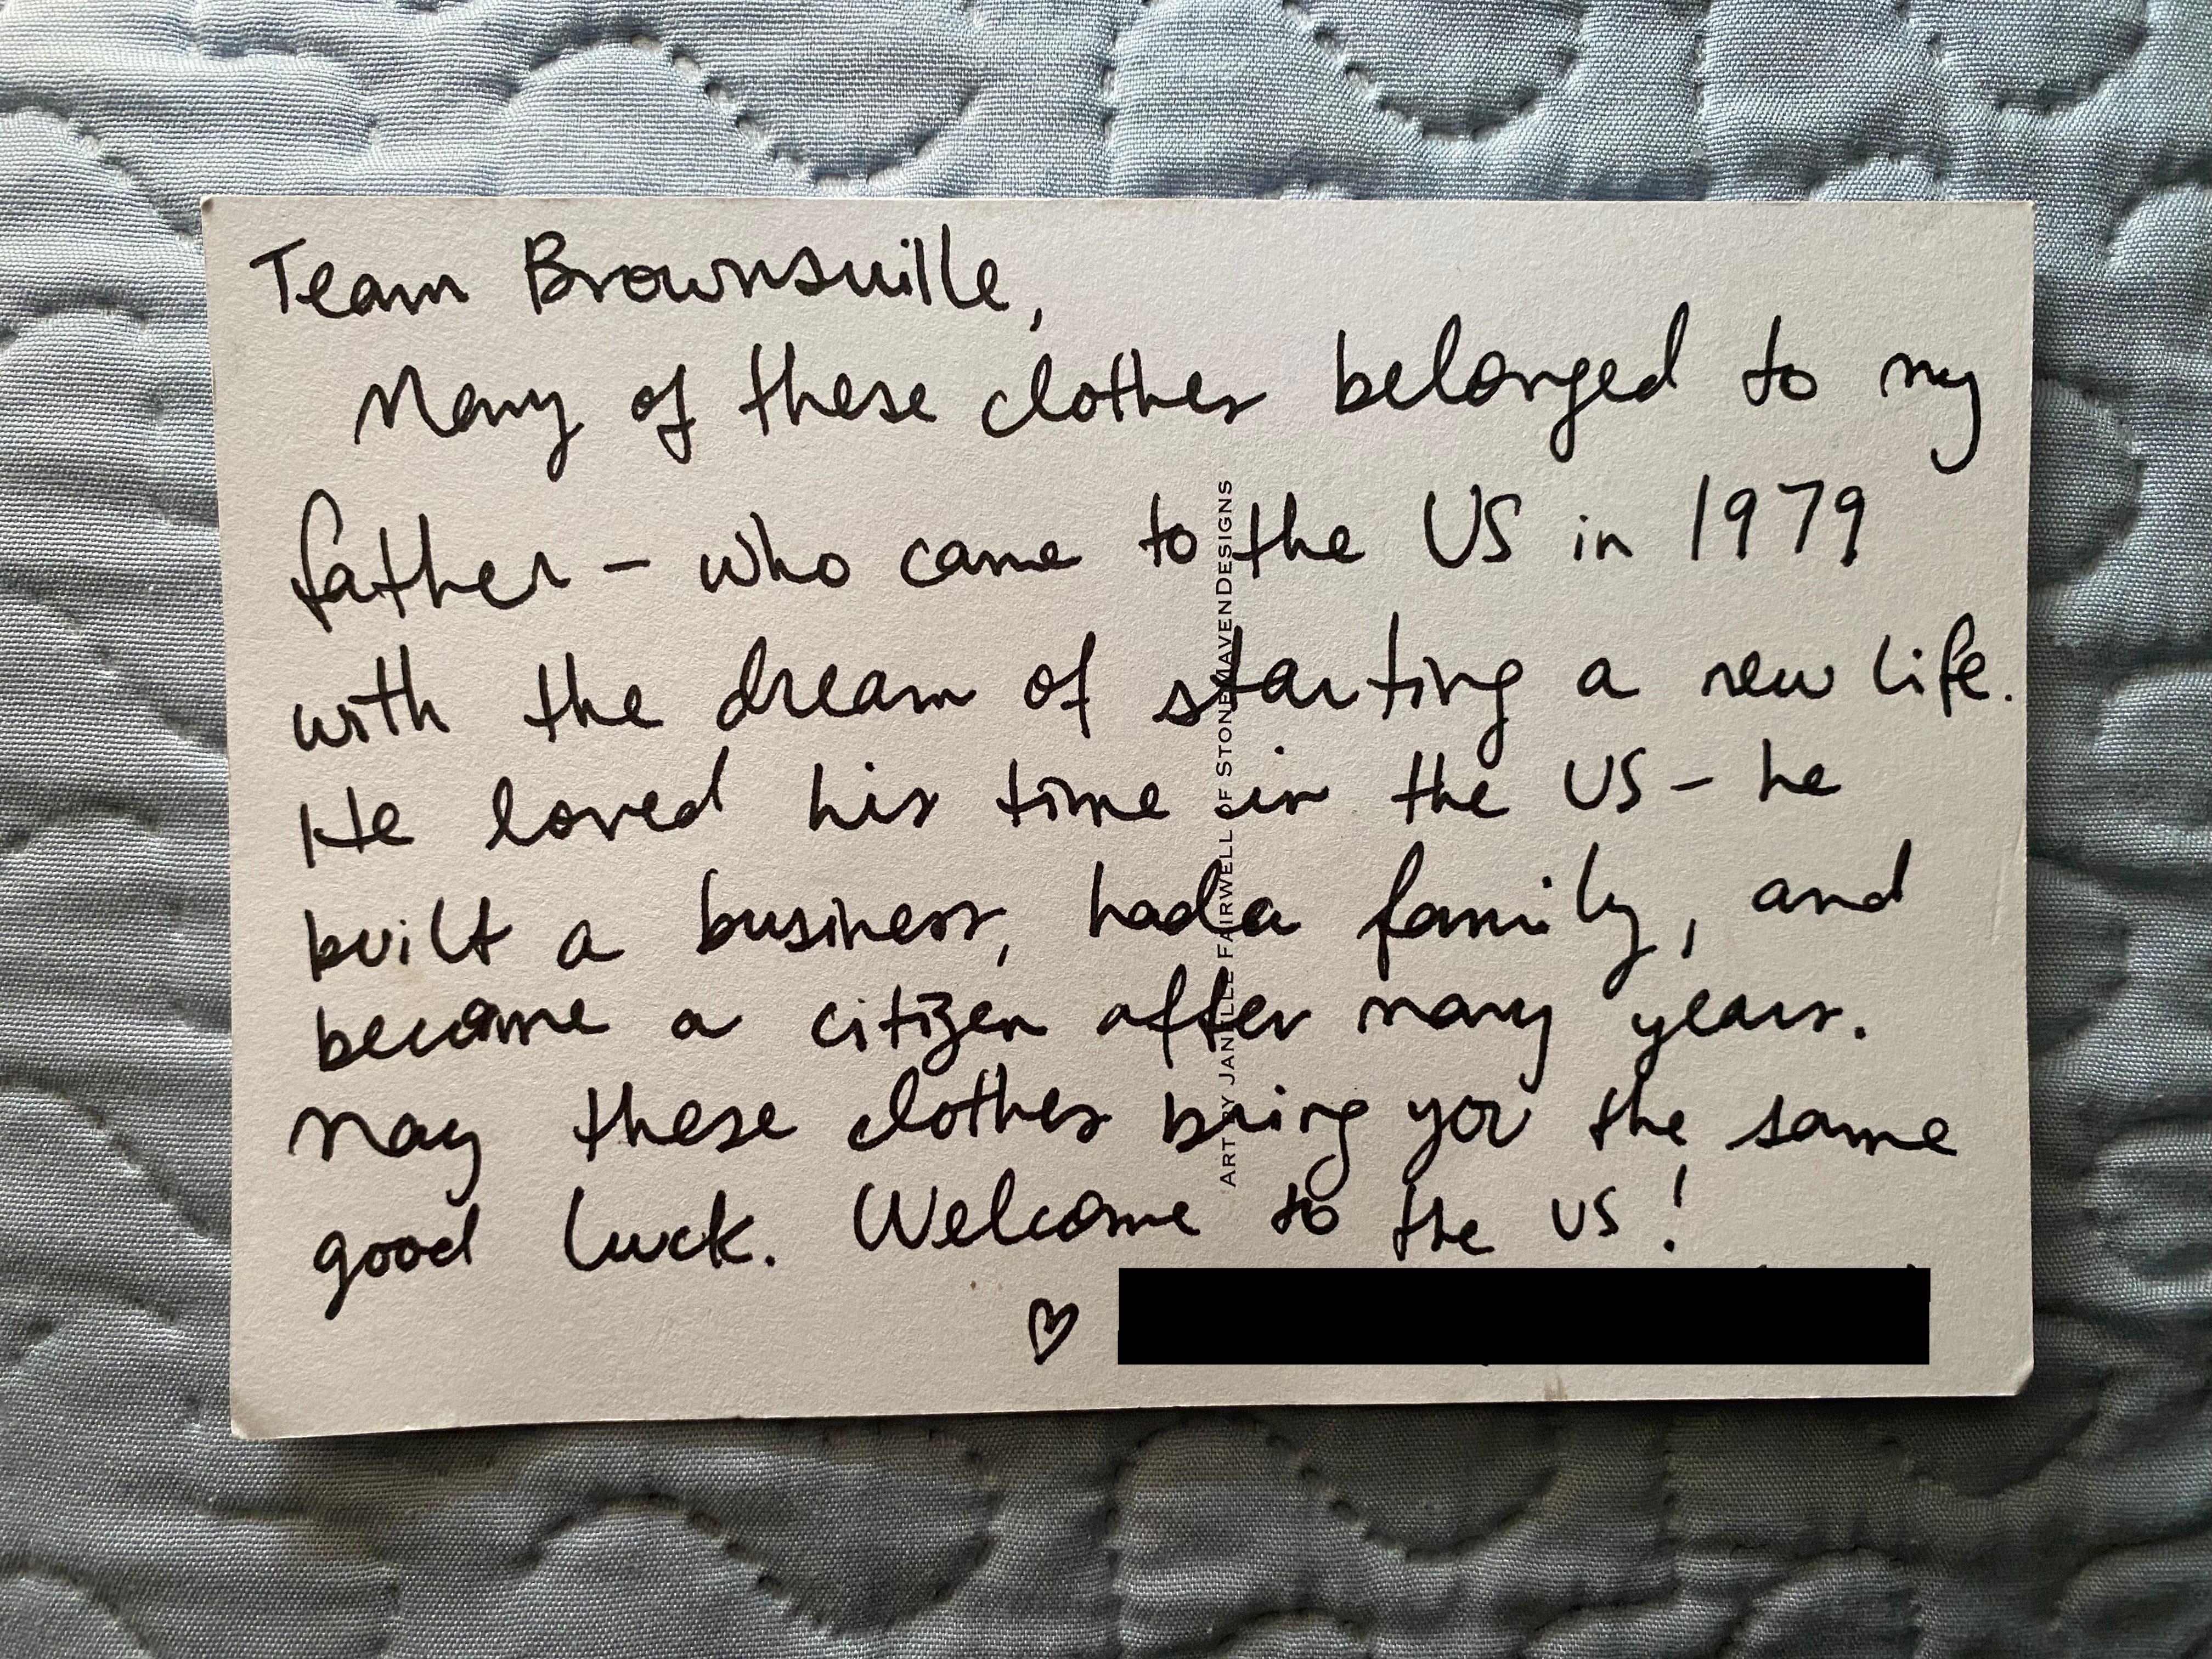 Team Brownsville,
Many of these clothes belonged to my
father – who came to the US in 1979
with the dream of starting a new life.
He loved his time in the US – he
built a business, had a family, and
became a citizen after many years.
May these clothes bring you the same
good luck. Welcome to the US!
♡
ART BY JANELLE FAIRWELL OF STONEMAVENDESIGNS